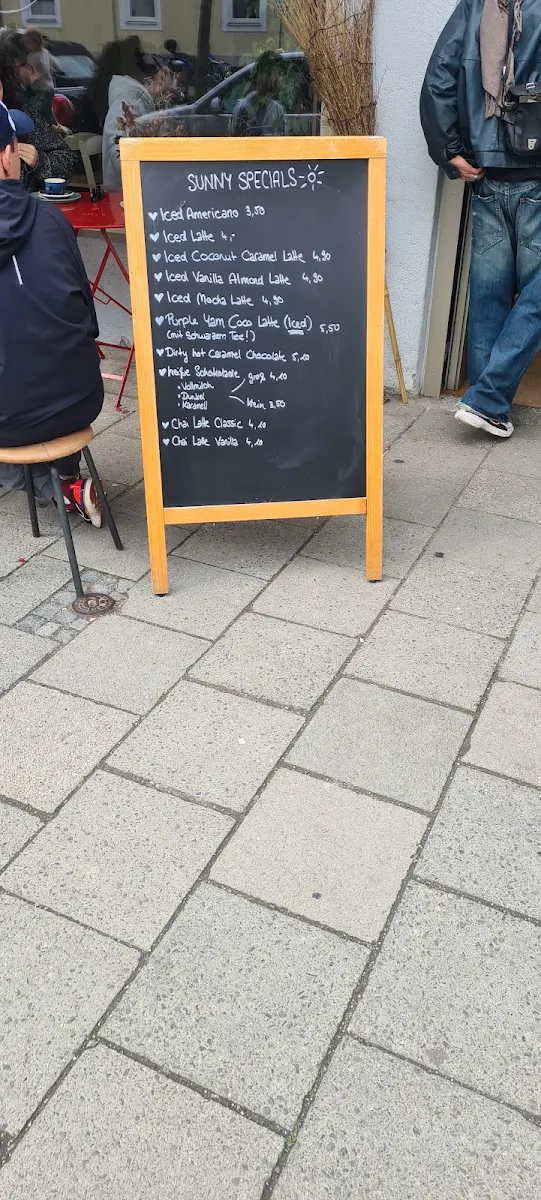 SUNNY SPECIALS
Iced Americano 3,50
Iced Latte 4,-
Iced Coconut Caramel Latte 4,90
Iced Vanilla Almond Latte 4,90
Iced Mocha Latte 4,90
Purple Yam Coco Latte (Iced) 5,50
(mit Schwarzem Tee!)
Dirty hot Caramel Chocolate 5,10
heiße Schokolade groß 4,10
Vollmilch
Dunkel
Karamell klein 3,50
Chai Latte Classic 4,10
Chai Latte Vanilla 4,10